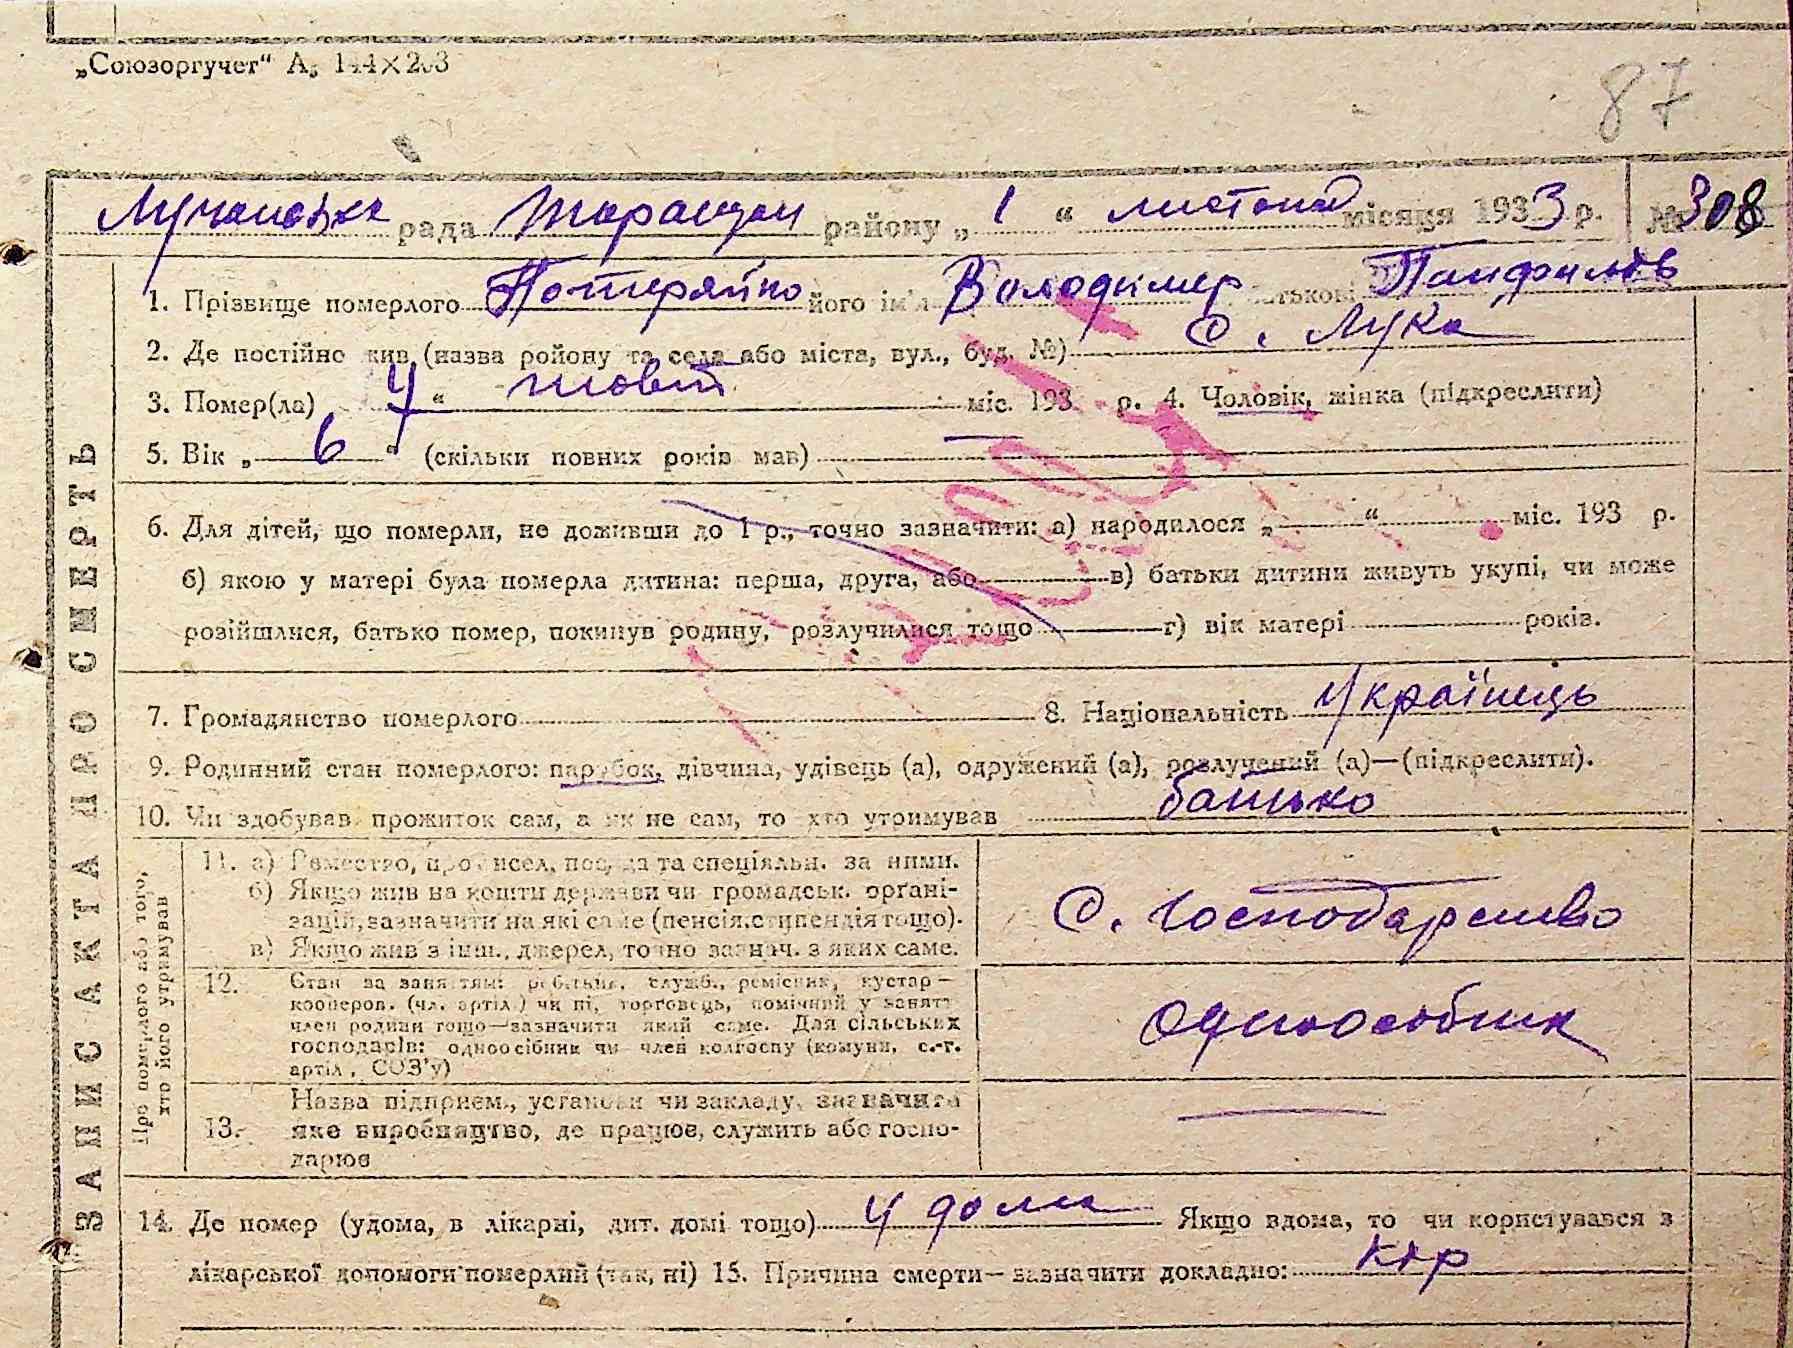 „Союзоргучет“ А₅ 144×203
87
Лучанська рада Таращан району „ 1 “ листопад місяця 1933 р. № 308
1. Прізвище померлого Потеряйко його ім'я Володимер батькові Панфилов
2. Де постійно жив (назва ройону та села або міста, вул., буд. №) с. Лука
3. Помер(ла) 4 “ жовт міс. 193 р. 4. Чоловік, жінка (підкреслити)
5. Вік „ 6 “ (скільки повних років мав)
6. Для дітей, що померли, не доживши до 1 р., точно зазначити: а) народилося „ “ міс. 193 р.
б) якою у матері була померла дитина: перша, друга, або в) батьки дитини живуть укупі, чи може
розійшлися, батько помер, покинув родину, розлучилися тощо г) вік матері років.
7. Громадянство померлого 8. Національність Українець
9. Родинний стан померлого: парубок, дівчина, удівець (а), одружений (а), розлучений (а)—(підкреслити).
10. Чи здобував прожиток сам, а як не сам, то хто утримував батько
ЗАПИС АКТА ПРО СМЕРТЬ
Про померлого або того, хто його утримував
11. а) Ремество, промисел, посада та спеціяльн. за ними.
б) Якщо жив на кошти держави чи громадськ. орґані-
зацій, зазначити на які саме (пенсія, стипендія тощо).
в) Якщо жив з інш., джерел, точно зазнач. з яких саме.
С. господарство
12. Стан за заняттям: робітник, служб, ремісник, кустар—
кооперов. (чл. артіл.) чи ні, торговець, помічний у занятт
член родини тощо—зазначити який саме. Для сільських
господарів: одноосібник чи член колгоспу (комуни, с.-г.
артіл., СОЗ'у)
одноосібник
Назва підприєм., установи чи закладу, зазначити
13. яке виробництво, де працює, служить або госпо-
дарює
14. Де помер (удома, в лікарні, дит. домі тощо) У дома Якщо вдома, то чи користувався з
лікарської допомоги померлий (так, ні) 15. Причина смерти—зазначити докладно: кор